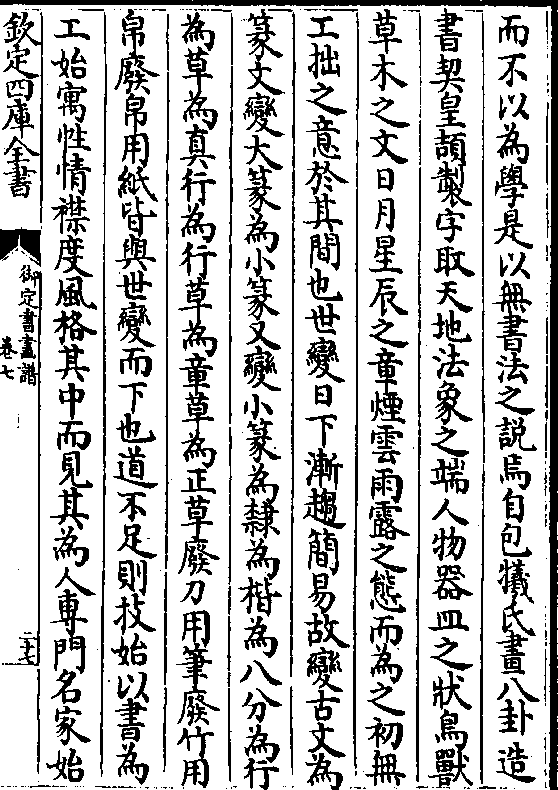 而不以為學是以無書法之說焉自包犧氏畫八卦造
書契皇頡製字取天地法象之端人物器皿之狀鳥獸
草木之文日月星辰之章煙雲雨露之態而為之初無
工拙之意於其間也世變日下漸趨簡易故變古文為
篆文變大篆為小篆又變小篆為隸為楷為八分為行
為草為真行為行草為章草為正草廢刀用筆廢竹用
帛廢帛用紙皆與世變而下也道不足則技始以書為
工始寓性情襟度風格其中而見其為人專門名家始
欽定四庫全書
御定書畫譜
卷七
二七